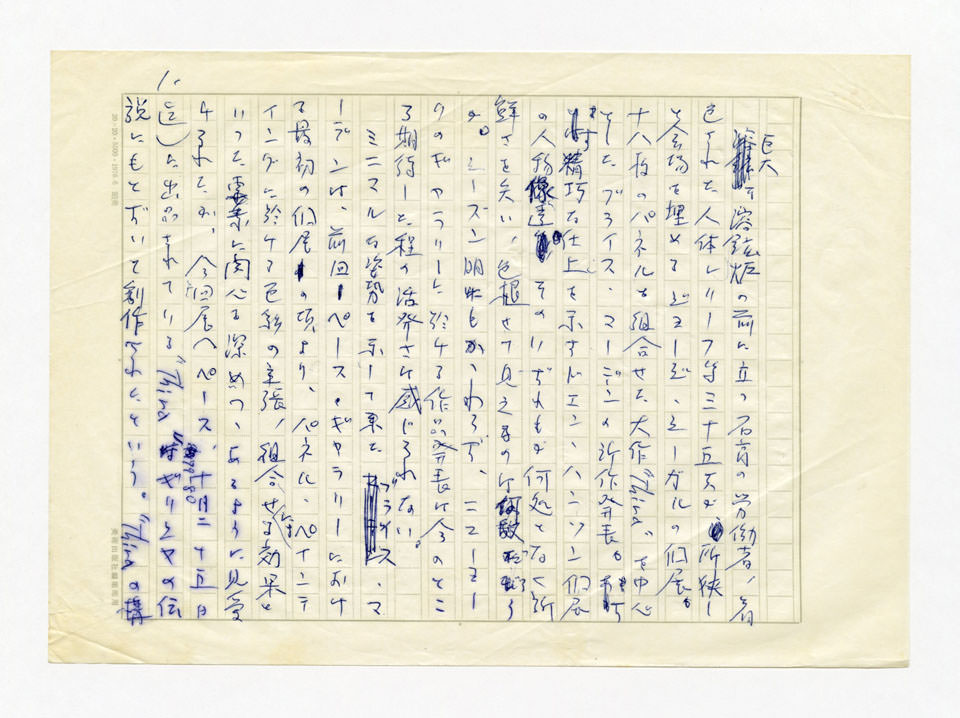 1.
巨大な溶鉱炉の前に立つ石膏の労働者、着
色された人体レリーフ等三十五点が所狭し
と会場を埋めるジョージ・シーガルの個展。
十八枚のパネルを組合せた大作"Thira"を中心
としたブライス・マーデンの新作発表。
精巧な仕上を示すドエン・ハンソン個展
の人物像達 そのいずれもが何処となく新
鮮さを失い、色褪せて見えるのは
か。シーズン明にもかゝわらず、ニューヨー
クのギャラリーに於ける作品発表は今のとこ
ろ期待した程の活発さは感じられない。
ミニマルな姿勢を示して来たブライス・マ
ーデンは、前回ペース・ギャラリーにおけ
る最初の個展の頃より、パネル、ペインテ
ィングに於ける色彩の主張、組合せによる効果と
いった要素に関心を深めつゝあるように見受
けられたが、今回展（ペース、十月二十五日
迄）に出品されている"Thira"はギリシャの伝
説にもとずいて創作されたという。"Thira"の
20×20
美術出版社編集部用